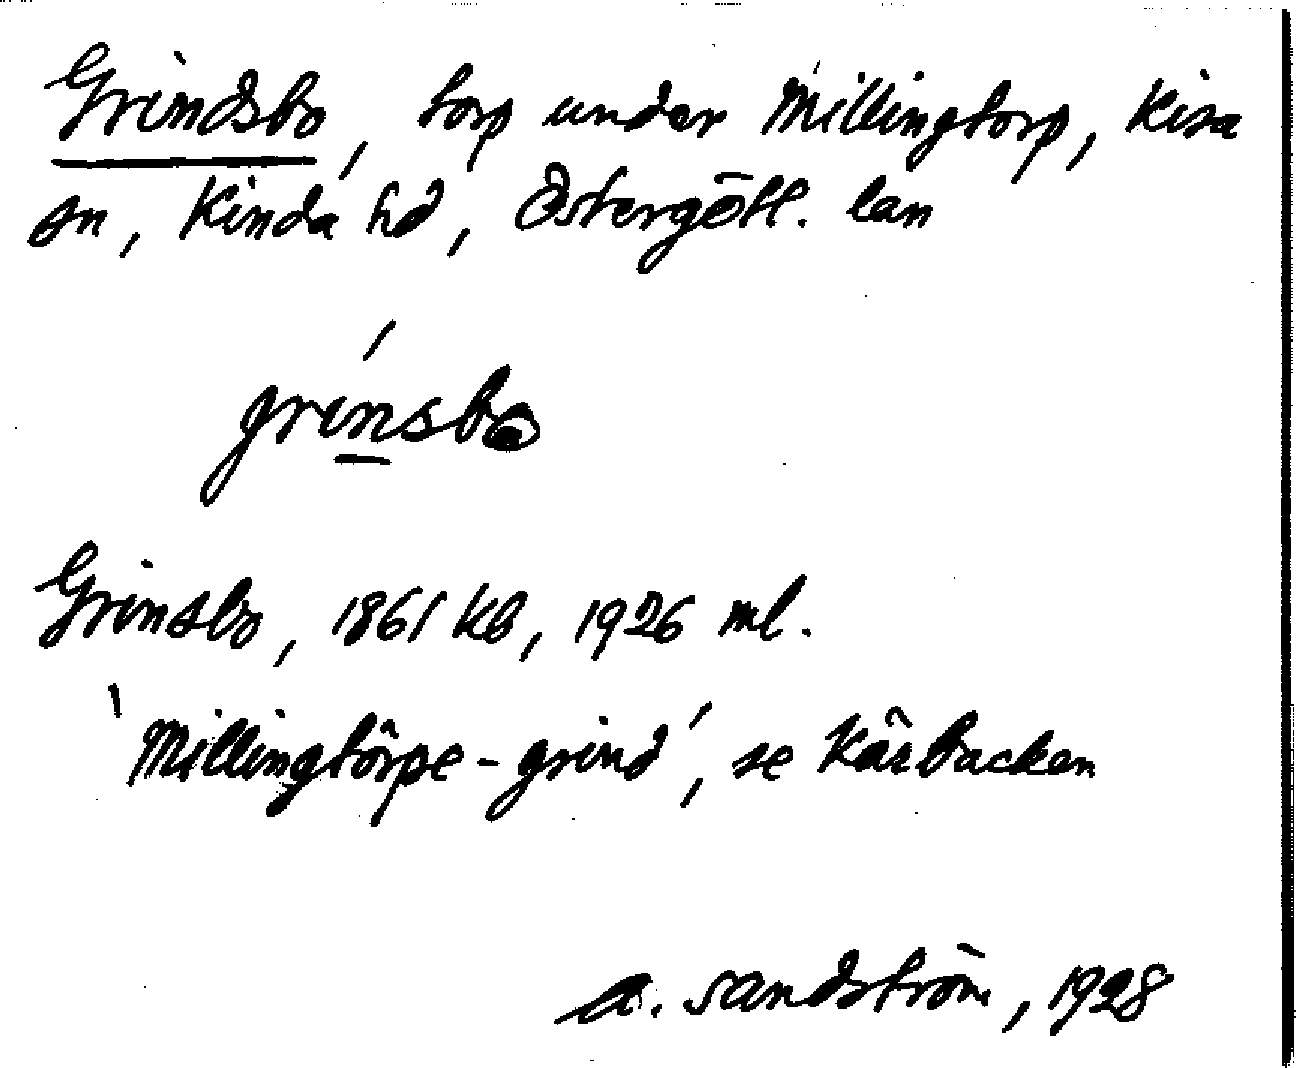 Grindsbo, torp under Millingtorp, Kisa
sn, Kinda hd, Östergötl. län
grinsbo
Grinsbo, 1861 kb, 1926 ml.
'Millingtörpe-grind', se Kärbacken
A. Sandström, 1928